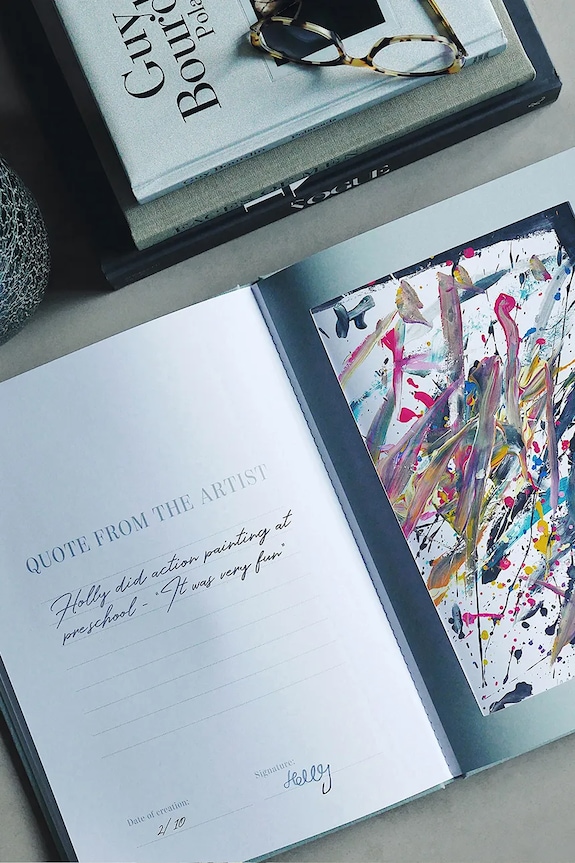 Guy
Bourdin
Polaroids
Guy Bourdin Polaroids
VOGUE
QUOTE FROM THE ARTIST
Holly did action painting at
preschool - "It was very fun"
Signature:
Holly
Date of creation:
2/10